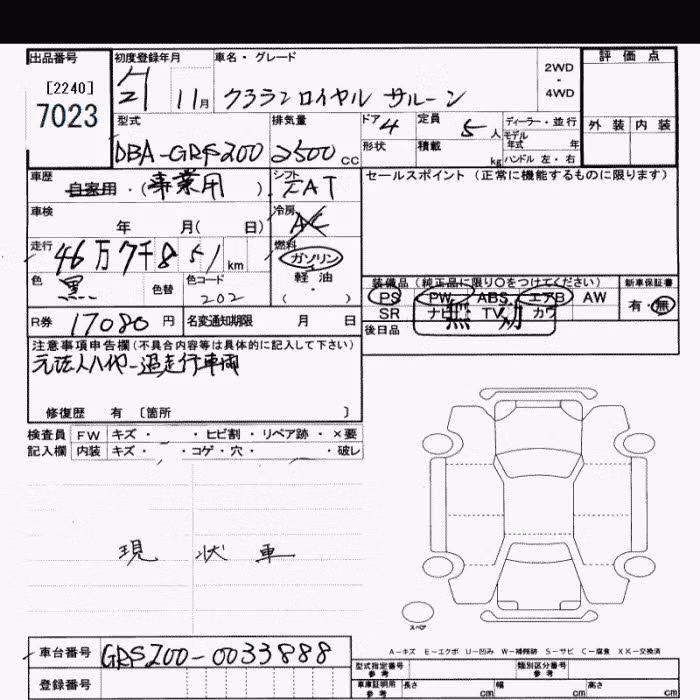 出品番号 初度登録年月 車名・グレード 評価点
[2240]
7023
H21 11月 クラウンロイヤル サルーン 2WD・4WD
型式 排気量 ドア 4 定員 5人 ディーラー・並行 外装 内装
DBA-GRS200 2500cc 形状 積載 kg モデル年式 年
ハンドル 左・右
車歴 自家用・(事業用) シフト FAT セールスポイント(正常に機能するものに限ります)
車検 年 月( 日) 冷房 AC
走行 46万7千851km 燃料 ガソリン
軽油
( )
色 黒 色替 色コード 202
装備品(純正品に限り○をつけてください) 新車保証書
PS PW ABS エアB AW 有・無
SR ナビ TV カワ
無効
R券 17080円 名変通知期限 月 日 後日品
注意事項申告欄(不具合内容等は具体的に記入して下さい)
元法人ハイヤー過走行車両
修復歴 有〔箇所 〕
検査員 FW キズ・ ・ヒビ割・リペア跡・×要
記入欄 内装 キズ・ ・コゲ・穴・ ・破レ
現状車
スペア
A-キズ E-エクボ U-凹み W-補修跡 S-サビ C-腐食 XX-交換済
車台番号 GRS200-0033888
登録番号
型式指定番号 参考 類別区分番号 参考
車庫証明用 参考 長さ cm 幅 cm 高さ cm